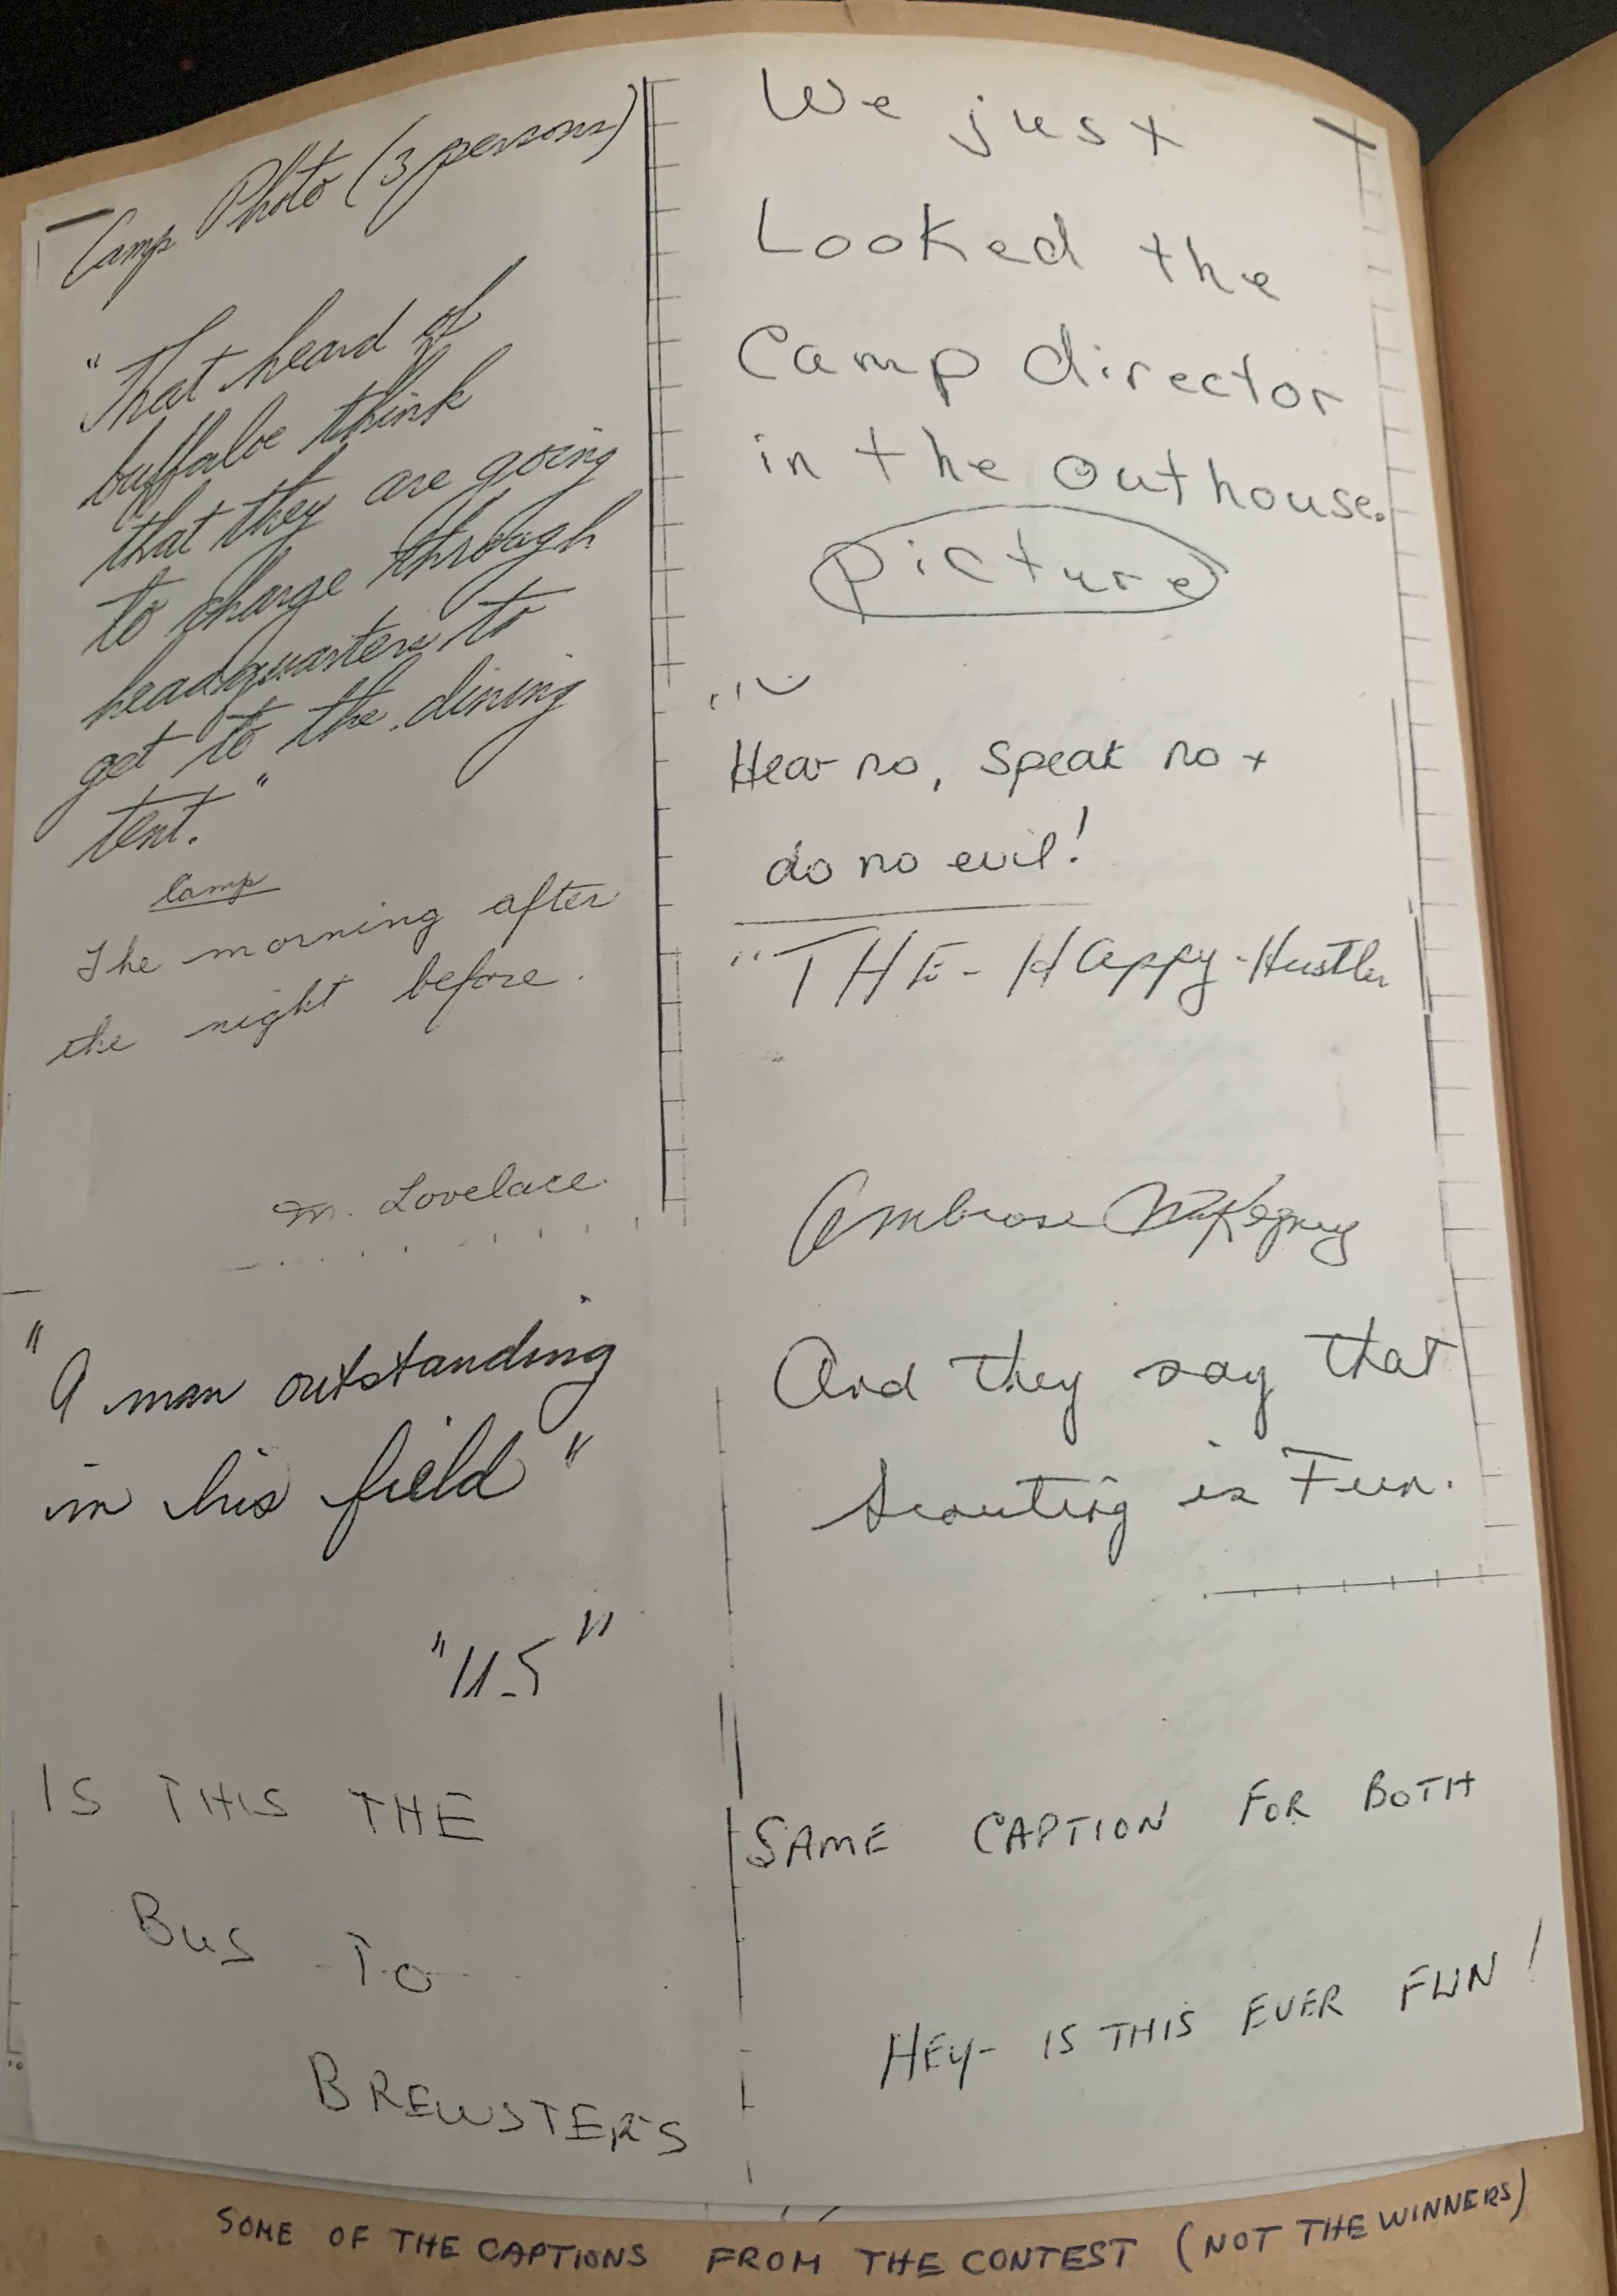 Camp Photo (3 persons)
"That heard of
buffaloe think
that they are going
to charge through
headquarters to
get to the dining
tent."
Camp
The morning after
the night before.
M. Lovelace
"A man outstanding
in his field"
"U.S"
IS THIS THE
BUS TO
BREWSTER'S
We just
Looked the
Camp director
in the outhouse.
picture
Hear no, speak no +
do no evil!
"THE - HAppy - Hustler
Ambrose
And they say that
Scouting is Fun.
SAME CAPTION FOR BOTH
HEY- IS THIS EVER FUN!
SOME OF THE CAPTIONS FROM THE CONTEST (NOT THE WINNERS)